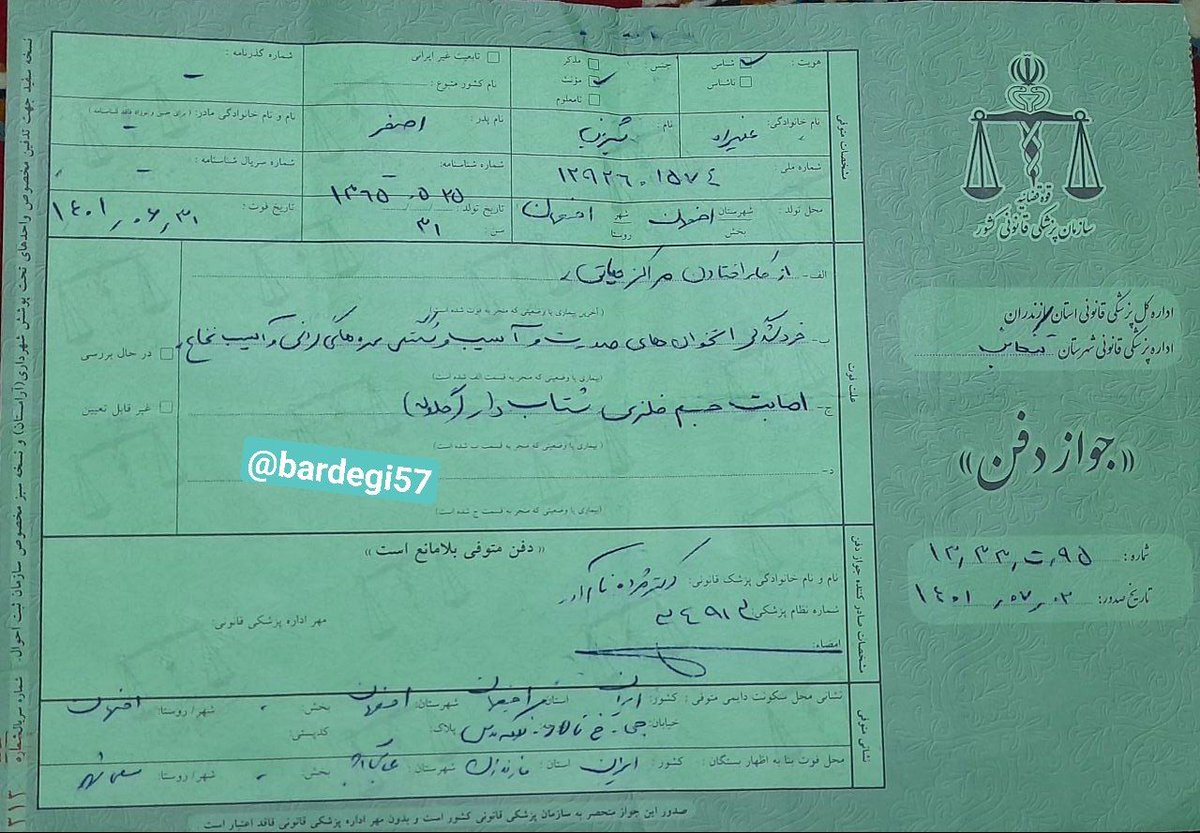 قوه قضائیه
سازمان پزشکی قانونی کشور
اداره کل پزشکی قانونی استان مازندران
اداره پزشکی قانونی شهرستان
«جواز دفن»
شماره: ۹۵ ر ت ر ۱۳٫۳۳
تاریخ صدور: ۱۴۰۱٫۰۷٫۰۳
مشخصات متوفی
هویت: شناس ناشناس
جنس: مذکر مونث نامعلوم
تابعیت غیر ایرانی
نام کشور متبوع:
شماره گذرنامه: -
نام خانوادگی:
نام:
نام پدر: اصغر
نام و نام خانوادگی مادر: (برای جنین و نوزاد فاقد شناسنامه) -
شماره ملی: ۱۲۹۲۶۰۱۵۷۴
شماره شناسنامه: -
شماره سریال شناسنامه: -
محل تولد: شهرستان اصفهان بخش شهر اصفهان روستا
تاریخ تولد: ۱۳۶۵٫۰۵٫۲۵
سن:
تاریخ فوت: ۱۴۰۱٫۰۶٫۳۱
علت فوت
الف- از کار افتادن مراکز حیاتی
(آخرین بیماری یا وضعیتی که منجر به فوت شده است)
ب- خردشدگی استخوان های صورت و آسیب و شکستگی مهره های گردنی و آسیب نخاع
(بیماری یا وضعیتی که منجر به قسمت الف شده است)
ج- اصابت جسم فلزی شتاب دار (گلوله)
(بیماری یا وضعیتی که منجر به قسمت ب شده است)
د-
(بیماری یا وضعیتی که منجر به قسمت ج شده است)
در حال بررسی
غیر قابل تعیین
@bardegi57
مشخصات صادر کننده جواز دفن
«دفن متوفی بلامانع است»
نام و نام خانوادگی پزشک قانونی: دکتر مژده
شماره نظام پزشکی:
امضاء:
مهر اداره پزشکی قانونی:
نشانی متوفی
نشانی محل سکونت دایمی متوفی: کشور: ایران استان: اصفهان شهرستان: اصفهان بخش: - شهر/روستا: اصفهان
خیابان: جی پلاک: کدپستی:
محل فوت بنا به اظهار بستگان: کشور: ایران استان: مازندران شهرستان: بخش: - شهر/روستا:
صدور این جواز منحصر به سازمان پزشکی قانونی کشور است و بدون مهر اداره پزشکی قانونی فاقد اعتبار است
نسخه سفید جهت تدفین مخصوص واحدهای تحت پوشش شهرداری (آرامستان) و نسخه سبز مخصوص سازمان ثبت احوال. شماره سریال:شماره